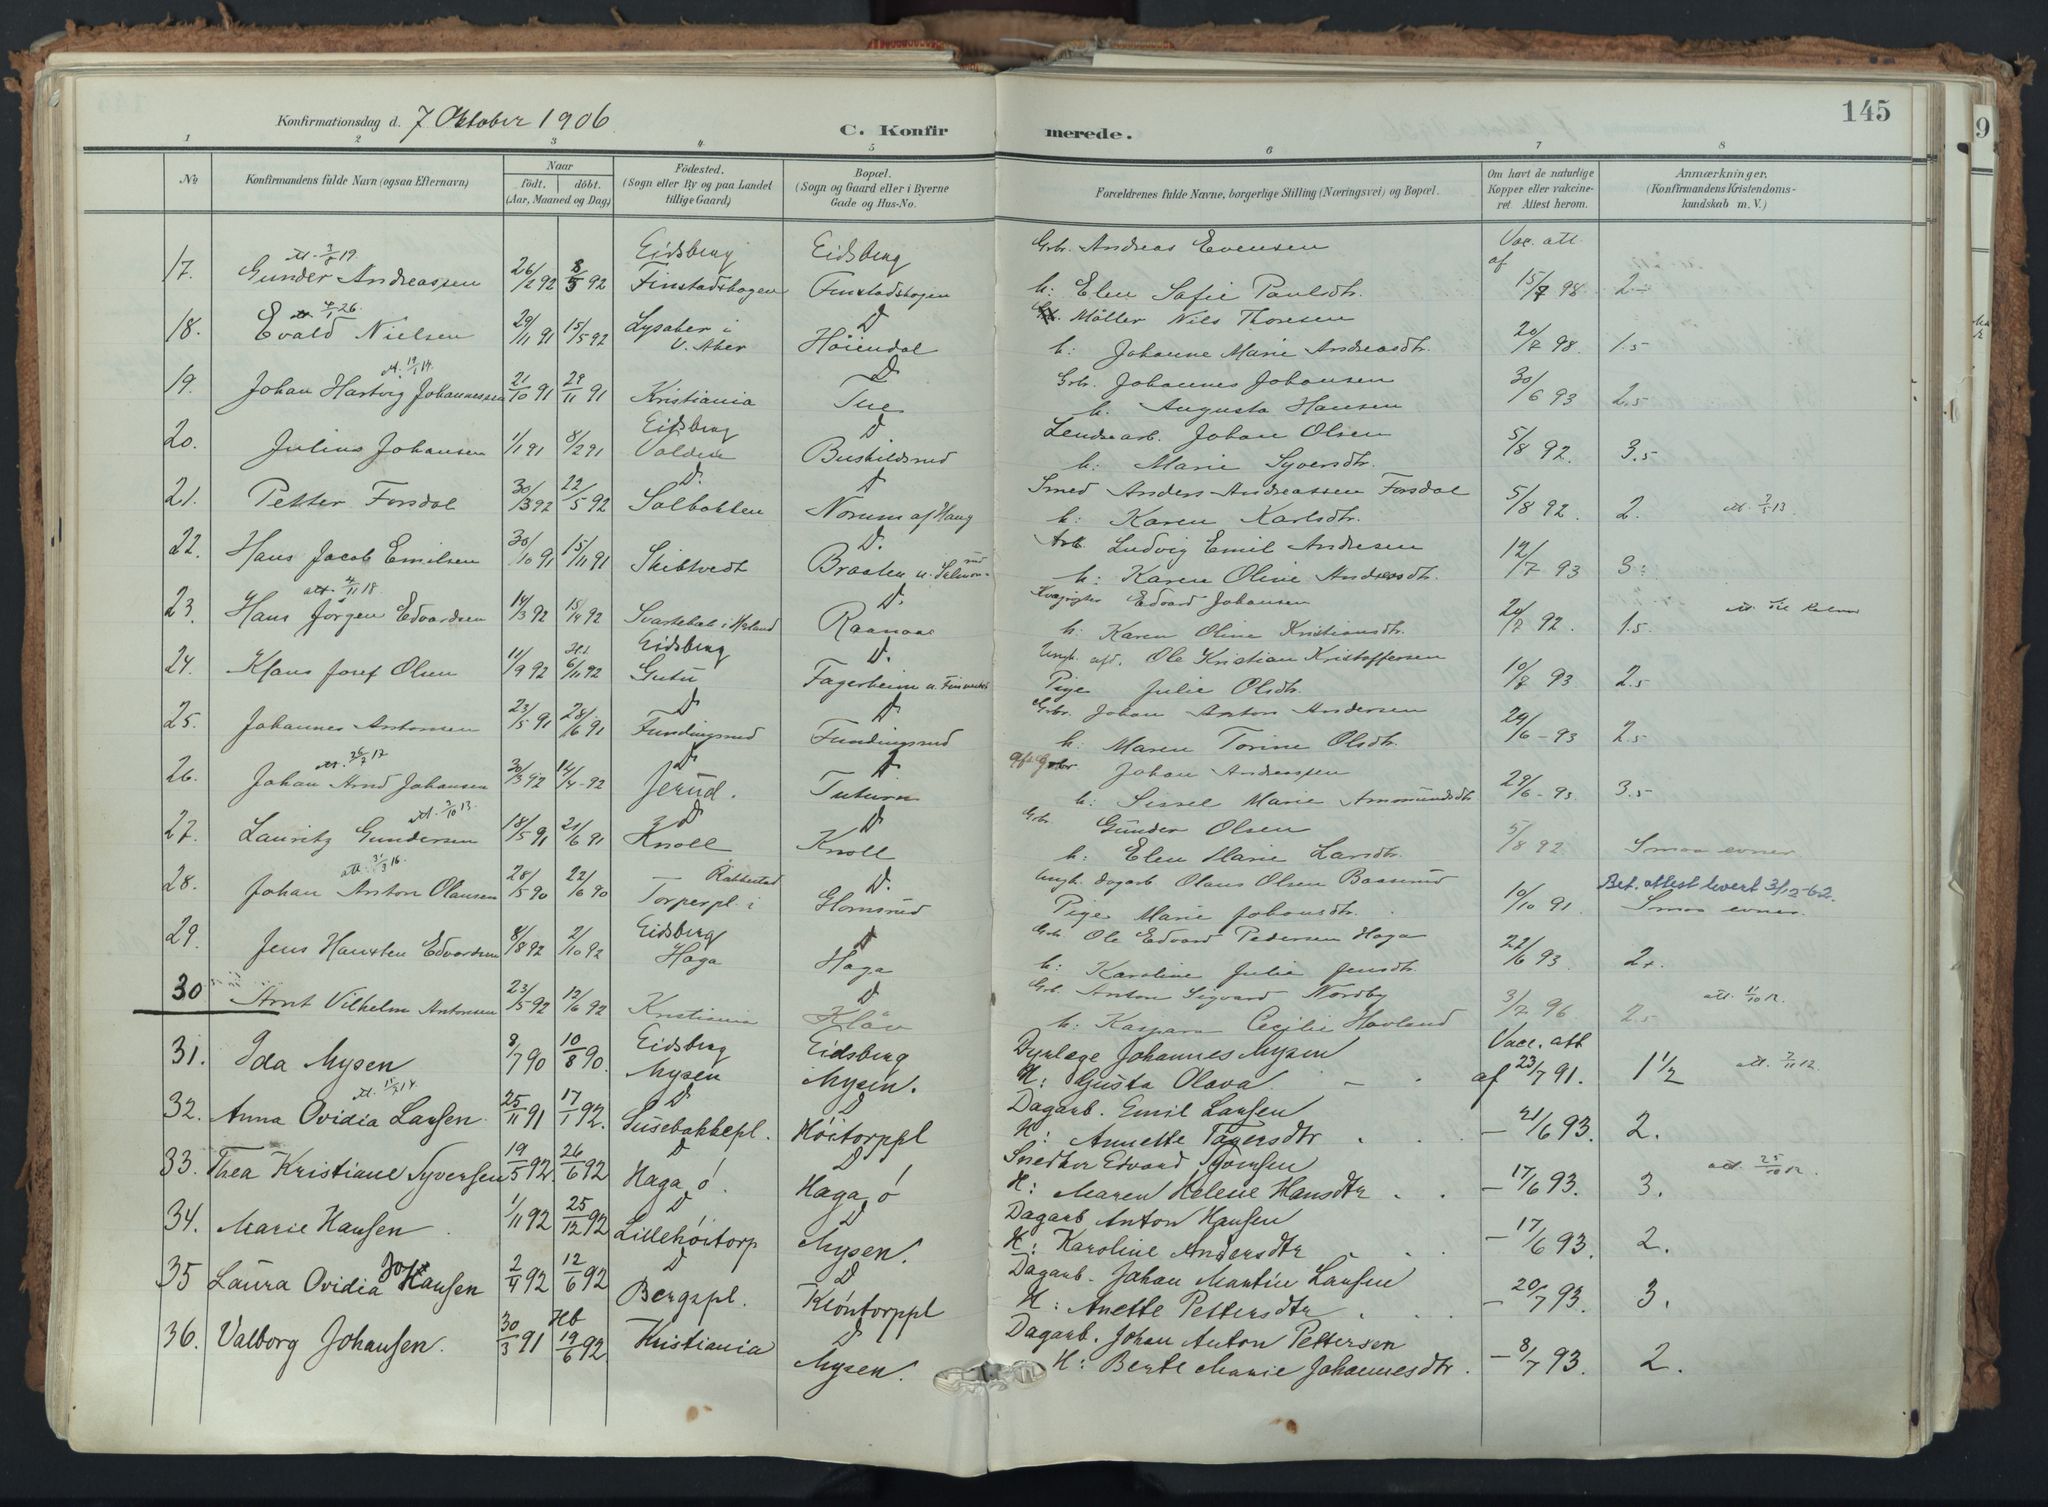 145
Konfirmationsdag d. 7 Oktober 1906
C. Konfirmerede.
1 2 3 4 5 6 7 8
№ Konfirmandens fulde Navn (ogsaa Efternavn) Naar født. døbt. (Aar, Maaned og Dag) Fødested. (Sogn eller By og paa Landet tillige Gaard) Bopæl. (Sogn og Gaard eller i Byerne Gade og Hus-No. Forældrenes fulde Navne, borgerlige Stilling (Næringsvei) og Bopæl. Om havt de naturlige Kopper eller vakcineret Attest herom. Anmærkninger. (Konfirmandens Kristendomskundskab m. V.)
Eidsberg Eidsberg Grb. Andreas Evensen Vac. att. af
17. Gunder Andreassen 26/2 92 8/5 92 Finstadshagen Finstadshagen h: Elen Safie Paulsdtr. 15/7 98 2.
att. 4/1 26.
18. Evald Nielsen 29/11 91 15/5 92 Lysaker i V. Aker D Høiendal Møller Nils Thoresen
h: Johanne Marie Andreasdtr. 20/7 98. 1.5
19. Johan Hartvig Johannessen 21/10 91 29/11 91 Kristiania D Tue Grb. Johannes Johansen
h. Augusta Hansen 30/6 93 2.5
20. Julius Johansen 1/1 91 8/2 91 Eidsberg Volden D Buskildsrud Johan Olsen
h: Marie Syversdtr. 5/8 92. 3.5
21. Petter Forsdal 30/3 92 22/5 92 D. Solbakken D Norum af Haug Smed Anders Andreassen Forsdal
h: Karen Karlsdtr. 5/8 92. 2.
22. Hans Jacob Emilsen 30/10 91 15/11 91 Skibtvedt D. Braaten u. Salmonrud Arb. Ludvig Emil Andresen
h: Karen Oline Andreasdtr. 12/7 93 3.
att. 4/11 18.
23. Hans Jørgen Edvardsen 14/3 92 18/4 92 D. Raanaas Edvard Johansen
h: Karen Oline Kristiansdtr. 20/7 92. 1.5
24. Klaus Josef Olsen 11/9 92 6/11 92 Eidsberg Gutu D. Fagerheim Ungk. Ole Kristian Kristoffersen
Pige Julie Olsdtr. 10/8 93. 2.5
25. Johannes Antonsen 23/5 91 28/6 91 D Fundingsrud D Fundingsrud Grb. Johan Anton Andersen
h. Maren Torine Olsdtr. 29/6 - 93 2.5
26. Johan Arnd Johansen 30/3 92 14/4 - 92 D Jerud. D Tuturn Johan Andreassen
h: Sissel Marie Ammundsdtr 29/6 - 93 3.5
att. 9/10 13.
27. Lauritz Gundersen 18/5 91 21/6 91 D Knoll D Knoll Grb. Gunder Olsen
h: Elen Marie Larsdtr. 5/8 92 Smaa evner
att. 31/3 16.
28. Johan Anton Olausen 28/5 90 22/6 90 Rakkestad Torperpl. i D. Glomsrud Ungk. dagarb Olaus Olsen Baasrud Bet. attest levert 3/12-62.
Pige Marie Johansdtr. 10/10 91 Smaa evner.
29. Jens Hansten Edvardsen 8/8 92 2/10 92 Eidsberg Haga D Haga Grb. Ole Edvard Pedersen Haga
h: Karoline Julie Jensdtr. 22/6 93. 2+.
30 Arnt Vilhelm Antonsen 23/5 92 12/6 92 Kristiania D Kløv Grb. Anton Sigvard Nordby
h: Kaspara Cecilie Hovland 3/2 96 2.5 att. 11/10 12.
31. Ida Mysen 8/7 90 10/8 90. Eidsberg Mysen Eidsberg Mysen. Dyrlæge Johannes Mysen Vacc. att
H: Gusta Olava. af 23/7 91. 1 1/2 att. 7/11 12.
32. Anna Ovidia Larsen. 25/11 91 17/1 92. D Susebakkepl. D Høitorppl Dagarb. Emil Larsen
H: Annette Tagersdtr - 21/6 93. 2.
33. Thea Kristiane Syversen 19/5 92. 26/6 92 D Haga ø. D Haga ø Snedker Edvard Syversen
H: Maren Helene Hansdtr - 17/6 93. 3. att. 25/10 12.
34. Marie Hansen. 1/11 92 25/12 92 D Lillehøitorp D Mysen. Dagarb Anton Hansen
H: Karoline Andersdtr - 17/6 93. 2.
35 Laura Ovidia Johansen 2/4 92 12/6 92 D Bergspl. D Kløntorppl Dagarb. Johan Martin Larsen
H: Anette Pettersdtr - 20/7 93. 3.
36. Valborg Johansen. 30/3 91 Hb 19/6 92 Kristiania D Mysen. Dagarb. Johan Anton Pettersen
H: Berte Marie Johannesdtr. - 8/7 93. 2.